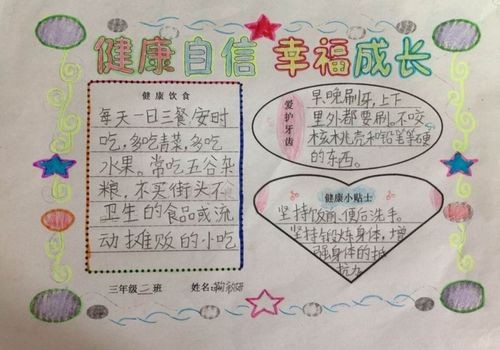 健康自信 幸福成长
健康饮食
每天一日三餐,安时
吃,多吃青菜,多吃
水果。常吃五谷杂
粮,不买街头不
卫生的食品或流
动摊贩的小吃
爱护牙齿
早晚刷牙,上下
里外都要刷。不咬
核桃壳和铅笔等硬
的东西。
健康小贴士
坚持饭前、便后洗手。
坚持锻炼身体,增
强身体的抵
抗力
三年级二班 姓名: